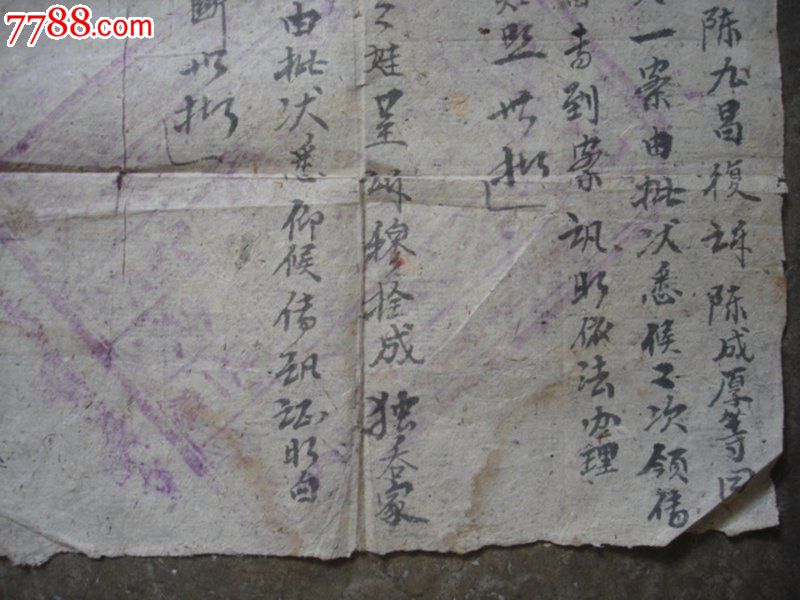 7788.com
陈九昌復诉陈成厚等同
一案由批状悉候二次领傳
到案讯明依法办理
照此批
娃呈诉穆拴成独吞家
由批状悉仰候傳訊証明白
断此批